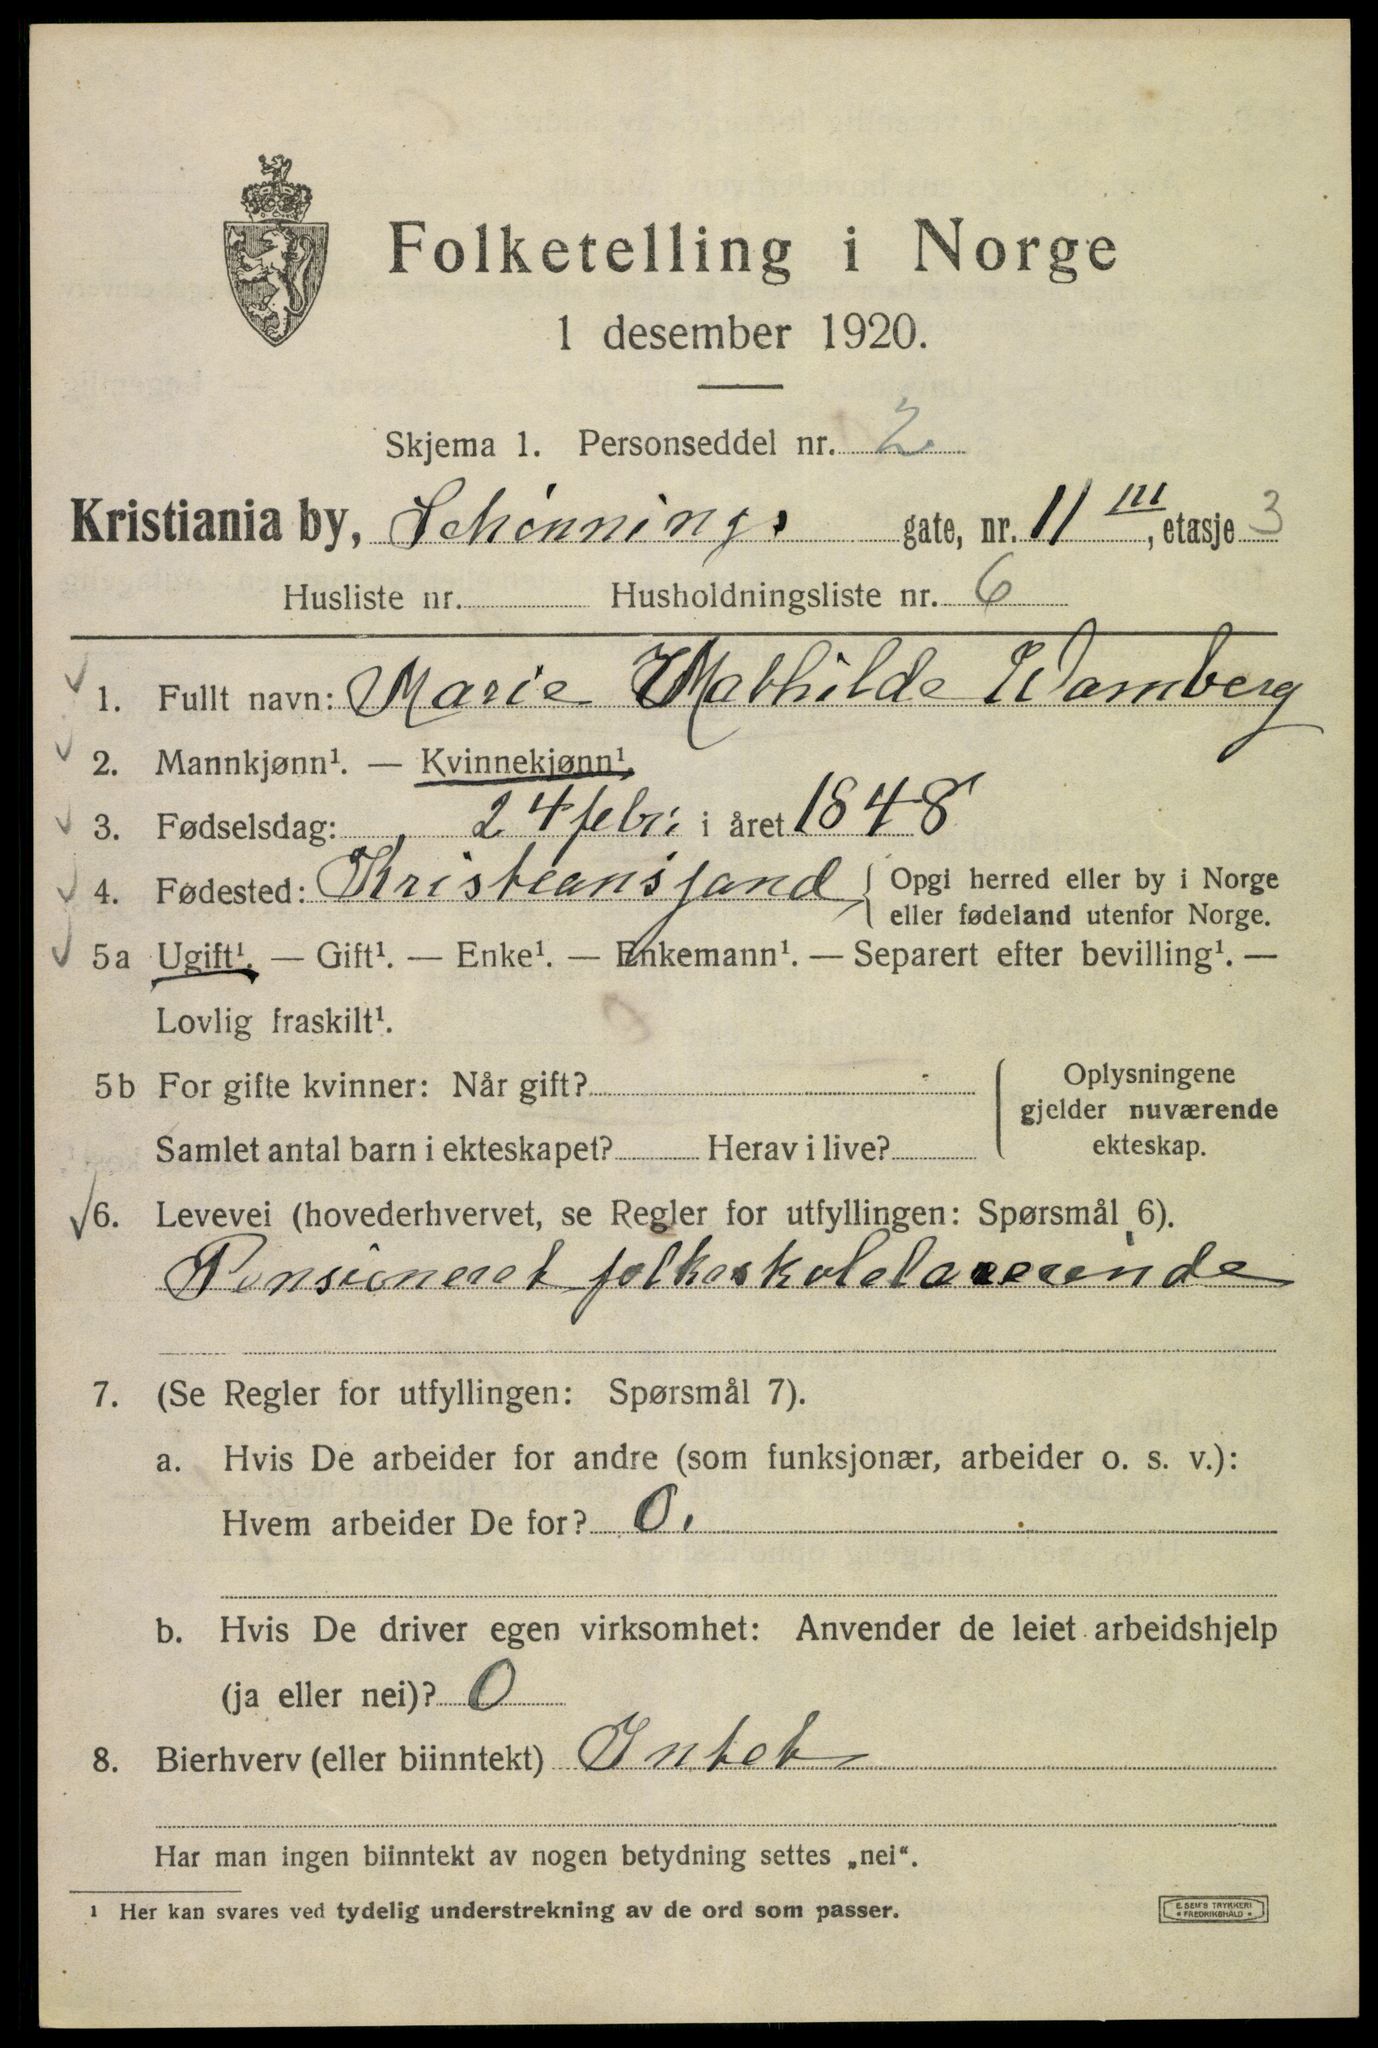 Folketelling i Norge
1 desember 1920.
Skjema 1. Personseddel nr. 2
Kristiania by, Schønnings gate, nr. 11 III, etasje 3
Husliste nr. Husholdningsliste nr. 6
1. Fullt navn: Marie Mathilde Wamberg
2. Mannkjønn¹. — Kvinnekjønn¹.
3. Fødselsdag: 24 febr. i året 1848
4. Fødested: Kristiansand { Opgi herred eller by i Norge
eller fødeland utenfor Norge.
5a Ugift¹. — Gift¹. — Enke¹. — Enkemann¹. — Separert efter bevilling¹. —
Lovlig fraskilt¹.
5b For gifte kvinner: Når gift?
Samlet antal barn i ekteskapet? Herav i live?
Oplysningene
gjelder nuværende
ekteskap.
6. Levevei (hovederhvervet, se Regler for utfyllingen: Spørsmål 6).
Pensioneret folkeskolelærerinde
7. (Se Regler for utfyllingen: Spørsmål 7).
a. Hvis De arbeider for andre (som funksjonær, arbeider o. s. v.):
Hvem arbeider De for? 0.
b. Hvis De driver egen virksomhet: Anvender de leiet arbeidshjelp
(ja eller nei)? 0
8. Bierhverv (eller biinntekt) Intet
Har man ingen biinntekt av nogen betydning settes „nei“.
¹ Her kan svares ved tydelig understrekning av de ord som passer.
E. SEM'S TRYKKERI
FREDRIKSHALD